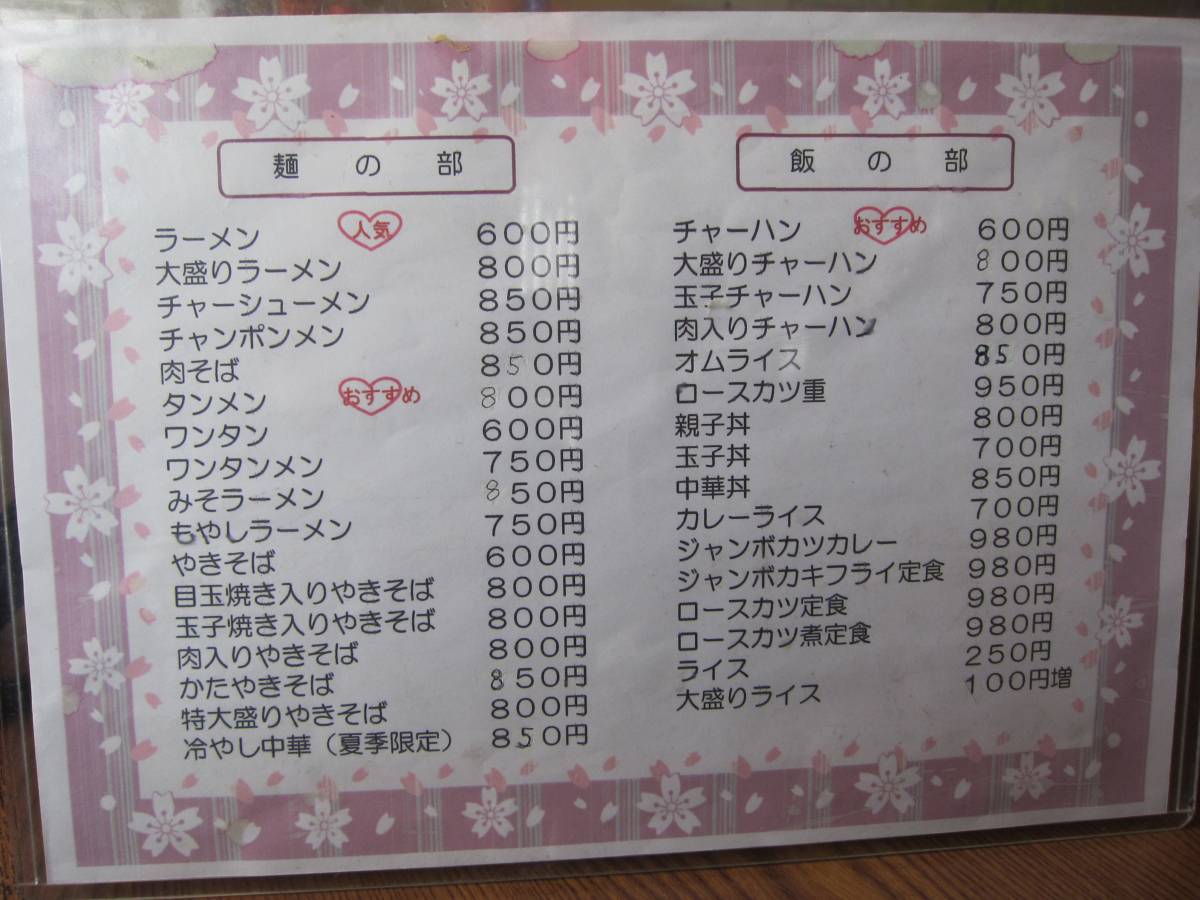 麺の部
ラーメン 人気 600円
大盛りラーメン 800円
チャーシューメン 850円
チャンポンメン 850円
肉そば 850円
タンメン おすすめ 800円
ワンタン 600円
ワンタンメン 750円
みそラーメン 850円
もやしラーメン 750円
やきそば 600円
目玉焼き入りやきそば 800円
玉子焼き入りやきそば 800円
肉入りやきそば 800円
かたやきそば 850円
特大盛りやきそば 800円
冷やし中華（夏季限定） 850円
飯の部
チャーハン おすすめ 600円
大盛りチャーハン 800円
玉子チャーハン 750円
肉入りチャーハン 800円
オムライス 850円
ロースカツ重 950円
親子丼 800円
玉子丼 700円
中華丼 850円
カレーライス 700円
ジャンボカツカレー 980円
ジャンボカキフライ定食 980円
ロースカツ定食 980円
ロースカツ煮定食 980円
ライス 250円
大盛りライス 100円増